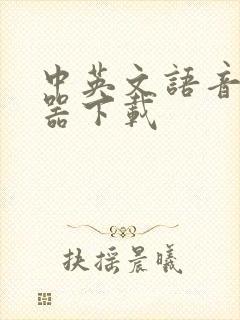 中英文語音
器下載
扶摇晨曦